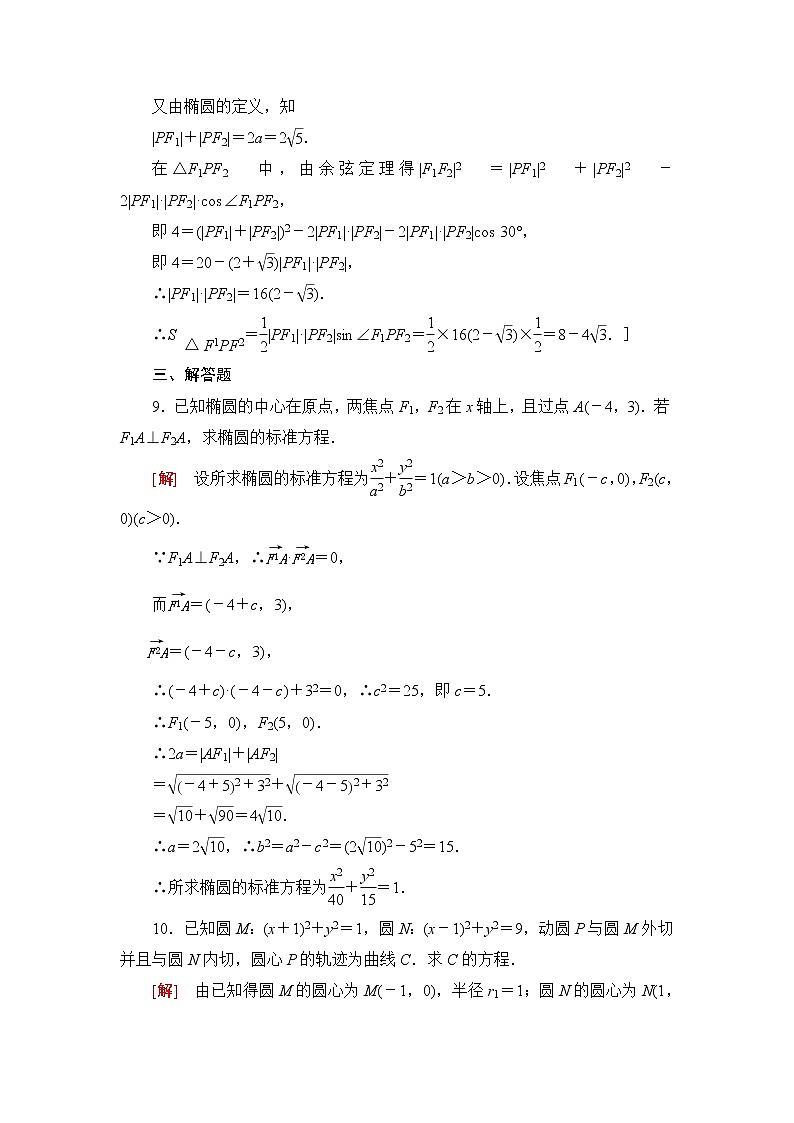 又由椭圆的定义，知
|PF1|＋|PF2|＝2a＝2√5.
在△F1PF2 中，由余弦定理得|F1F2|² ＝|PF1|² ＋|PF2|² －
2|PF1|·|PF2|·cos∠F1PF2，
即 4＝(|PF1|＋|PF2|)²－2|PF1|·|PF2|－2|PF1|·|PF2|cos 30°，
即 4＝20－(2＋√3)|PF1|·|PF2|，
∴|PF1|·|PF2|＝16(2－√3)．
∴S △ F1PF2＝1/2|PF1|·|PF2|sin∠F1PF2＝1/2×16(2－√3)×1/2＝8－4√3．］
三、解答题
9．已知椭圆的中心在原点，两焦点 F1，F2 在 x 轴上，且过点 A(－4，3)．若
F1A⊥F2A，求椭圆的标准方程．
[解] 设所求椭圆的标准方程为x²/a²＋y²/b²＝1(a＞b＞0)．设焦点 F1(－c，0)，F2(c，
0)(c＞0)．
∵F1A⊥F2A，∴F1A→·F2A→＝0，
而F1A→＝(－4＋c，3)，
F2A→＝(－4－c，3)，
∴(－4＋c)·(－4－c)＋3²＝0，∴c²＝25，即 c＝5.
∴F1(－5，0)，F2(5，0)．
∴2a＝|AF1|＋|AF2|
＝√((－4＋5)²＋3²)＋√((－4－5)²＋3²)
＝√10＋√90＝4√10.
∴a＝2√10，∴b²＝a²－c²＝(2√10)²－5²＝15.
∴所求椭圆的标准方程为x²/40＋y²/15＝1.
10．已知圆 M：(x＋1)²＋y²＝1，圆 N：(x－1)²＋y²＝9，动圆 P 与圆 M 外切
并且与圆 N 内切，圆心 P 的轨迹为曲线 C．求 C 的方程．
[解] 由已知得圆 M 的圆心为 M(－1，0)，半径 r1＝1；圆 N 的圆心为 N(1，